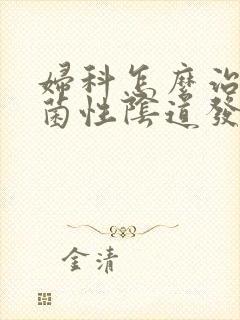 婦科怎麼治
菌性陰道發
金清